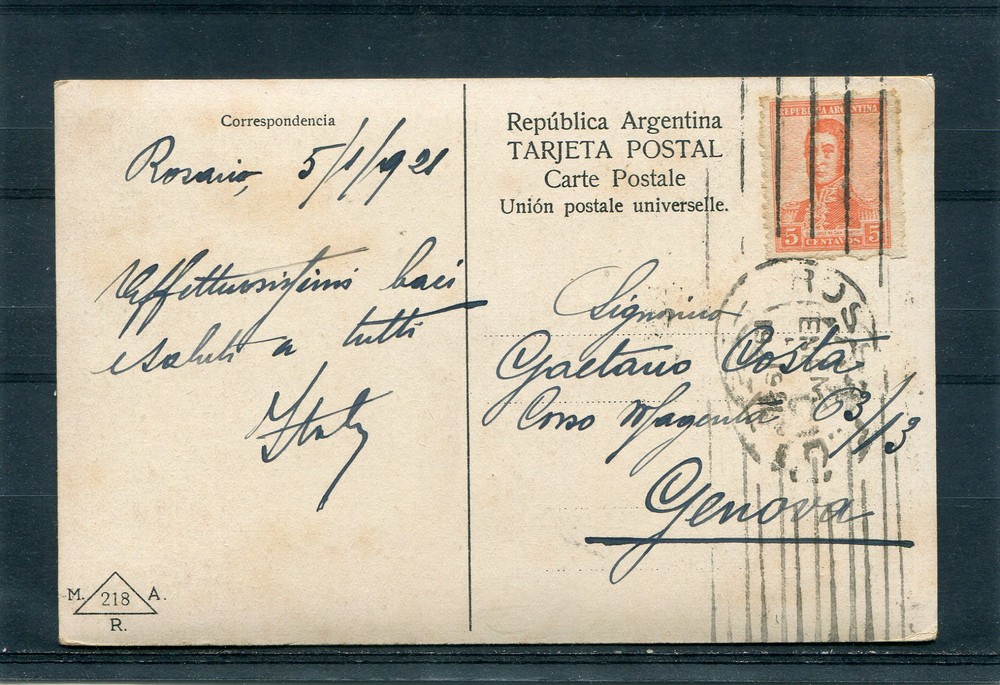 Correspondencia
Rosario, 5/1/1921
Affettuosissimi baci
e saluti a tutti
Italy
M. 218 A.
R.
República Argentina
TARJETA POSTAL
Carte Postale
Unión postale universelle.
REPUBLICA ARGENTINA
5 CENTAVOS 5
Signorino
Gaetano Costa
Corso Magenta 63/13
Genova